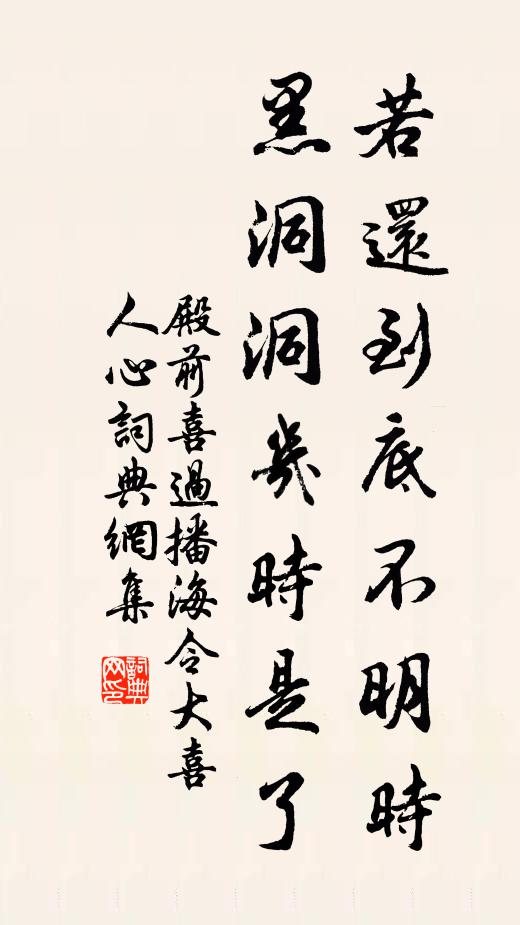 若還到底不明時
黑洞洞幾時是了
殿前喜過播海令大喜
人心詞典網集
詞典網印